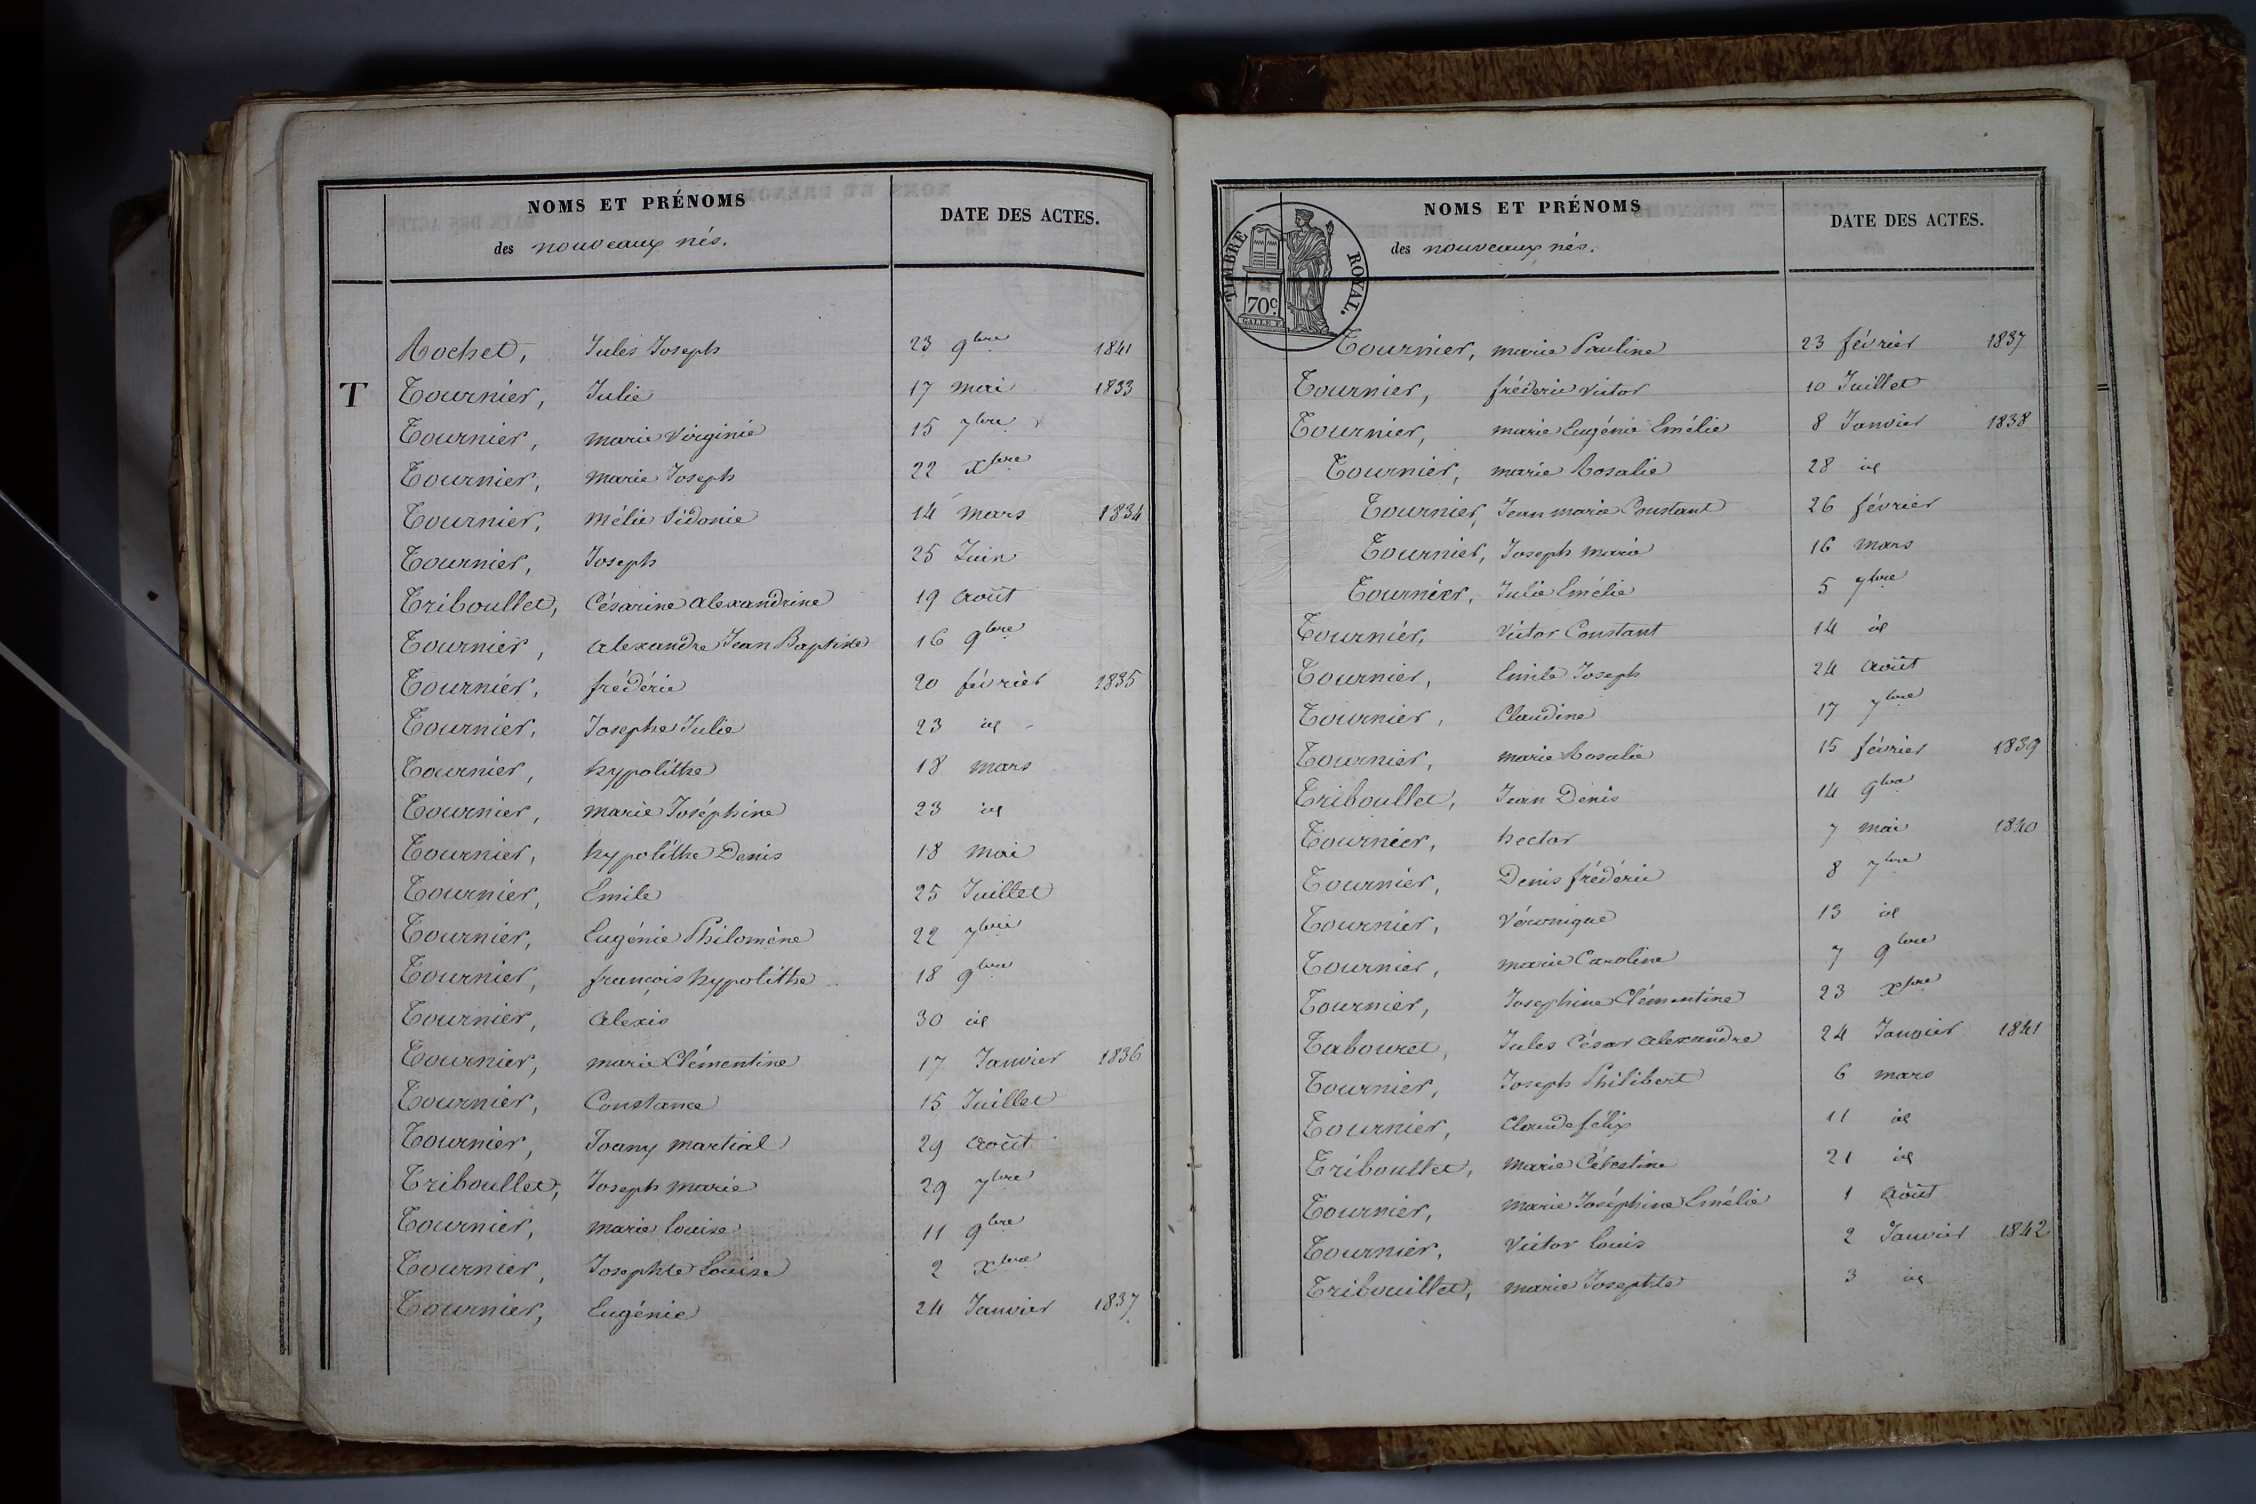 NOMS ET PRÉNOMS
des nouveaux nés.
DATE DES ACTES.
Rochet, Jules Joseph 23 9bre 1841
T Tournier, Julie 17 mai 1833
Tournier, marie Virginie 15 7bre
Tournier, marie Joseph 22 xbre
Tournier, mélie Sidonie 14 mars 1834
Tournier, Joseph 25 Juin
Triboullet, Césarine alexandrine 19 août
Tournier, alexandre Jean Baptiste 16 9bre
Tournier, frédéric 20 février 1835
Tournier, Josephe Julie 23 id
Tournier, hypolithe 18 mars
Tournier, marie Joséphine 23 id
Tournier, hypolithe Denis 18 mai
Tournier, Emile 25 Juillet
Tournier, Eugénie Philomène 22 7bre
Tournier, françois hypolithe 18 9bre
Tournier, alexis 30 id
Tournier, marie Clémentine 17 Janvier 1836
Tournier, Constance 15 Juillet
Tournier, Joany martial 29 août
Triboullet, Joseph marie 29 7bre
Tournier, marie Louise 11 9bre
Tournier, Josephte Louise 2 xbre
Tournier, Eugénie 24 Janvier 1837
NOMS ET PRÉNOMS
des nouveaux nés.
DATE DES ACTES.
TIMBRE ROYAL.
70c.
Tournier, marie Pauline 23 février 1837
Tournier, fréderic victor 10 Juillet
Tournier, marie Eugénie Emélie 8 Janvier 1838
Tournier, marie Rosalie 28 id
Tournier, Jean marie Constant 26 février
Tournier, Joseph marie 16 mars
Tournier, Julie Emélie 5 7bre
Tournier, Victor Constant 14 id
Tournier, Emile Joseph 24 août
Tournier, Claudine 17 7bre
Tournier, marie Rosalie 15 février 1839
Triboullet, Jean Denis 14 9bre
Tournier, hector 7 mai 1840
Tournier, Denis frédéric 8 7bre
Tournier, Véronique 13 id
Tournier, marie Caroline 7 9bre
Tournier, Josephine Clémentine 23 xbre
Tabouret, Jules César alexandre 24 Janvier 1841
Tournier, Joseph Philibert 6 mars
Tournier, Claude félix 11 id
Triboullet, marie Célestine 21 id
Tournier, marie Joséphine Emélie 1 août
Tournier, Victor Louis 2 Janvier 1842
Tribouillet, marie Josephte 3 id